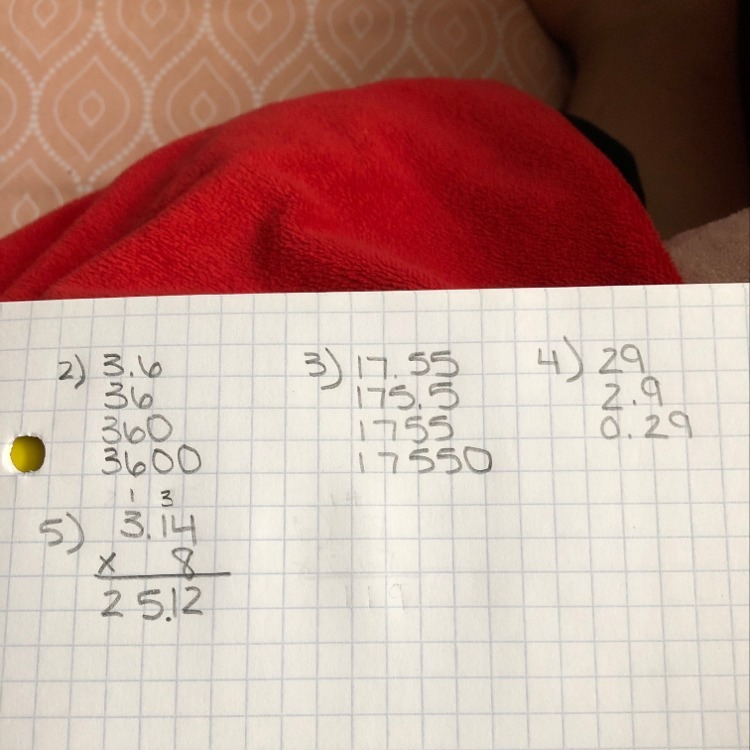 2) 3.6
36
360
3600
3) 17.55
175.5
1755
17550
4) 29
2.9
0.29
5) 1 3
3.14
x 8
25.12